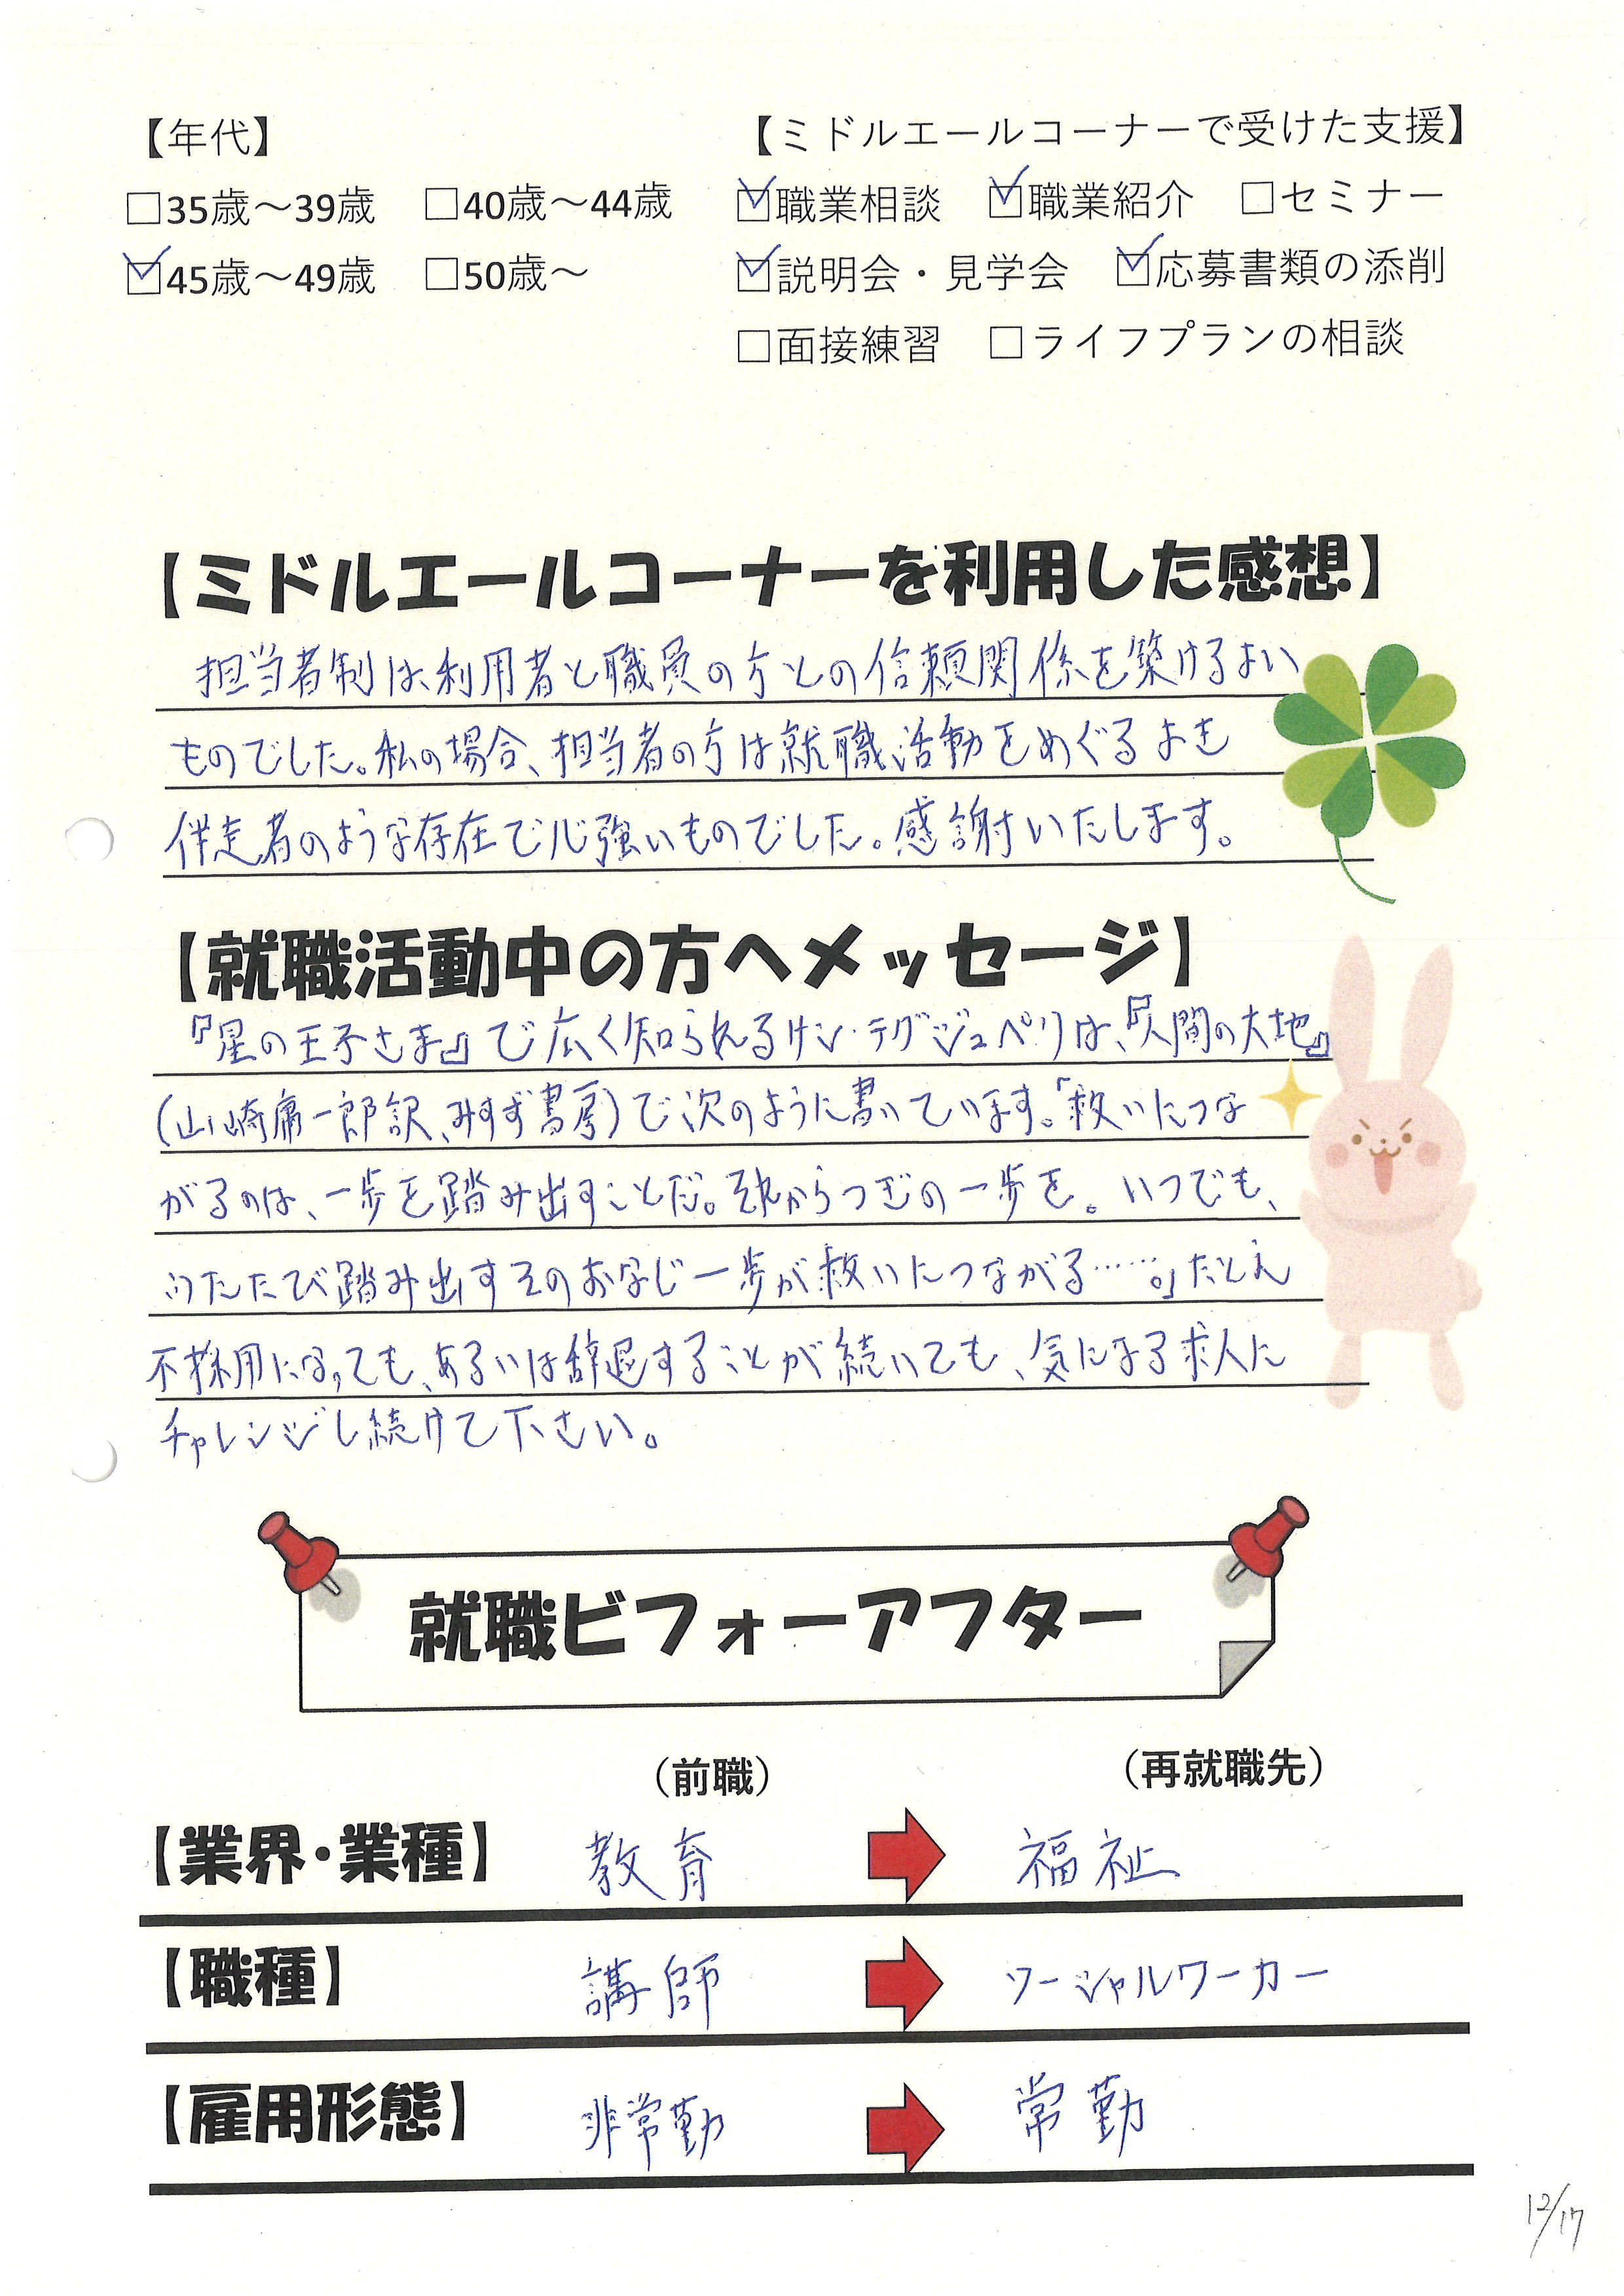 【年代】
□35歳～39歳 □40歳～44歳
☑45歳～49歳 □50歳～
【ミドルエールコーナーで受けた支援】
☑職業相談 ☑職業紹介 □セミナー
☑説明会・見学会 ☑応募書類の添削
□面接練習 □ライフプランの相談
【ミドルエールコーナーを利用した感想】
担当者制は、利用者と職員の方との信頼関係を築けるよい
ものでした。私の場合、担当者の方は就職活動をめぐるよき
伴走者のような存在で心強いものでした。感謝いたします。
【就職活動中の方へメッセージ】
『星の王子さま』で広く知られるサン・テグジュペリは、『人間の大地』
(山崎庸一郎訳、みすず書房)で次のように書いています。「救いにつな
がるのは、一歩を踏み出すことだ。それからつぎの一歩を。いつでも、
ふたたび踏み出すそのおなじ一歩が救いにつながる……。」たとえ
不採用になっても、あるいは辞退することが続いても、気になる求人に
チャレンジし続けて下さい。
就職ビフォーアフター
(前職) (再就職先)
【業界・業種】 教育 福祉
【職種】 講師 ソーシャルワーカー
【雇用形態】 非常勤 常勤
12/17